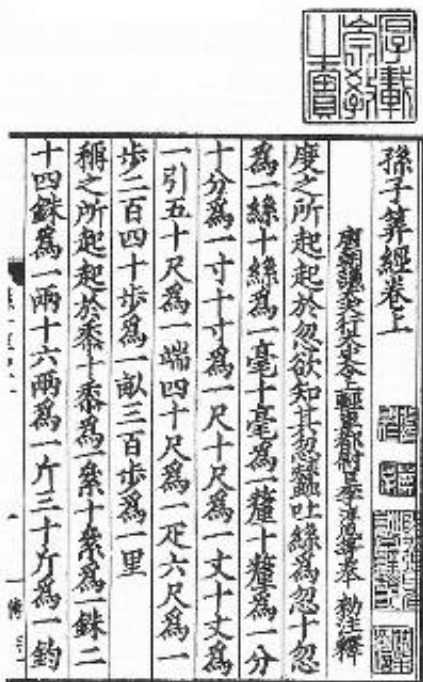 孫子算經卷上
唐朝議大夫行太史令上輕車都尉臣李淳風等奉 勑注釋
度之所起起於忽欲知其忽蠶吐絲為忽十忽
為一絲十絲為一毫十毫為一釐十釐為一分
十分為一寸十寸為一尺十尺為一丈十丈為
一引五十尺為一端四十尺為一疋六尺為一
步二百四十步為一畝三百步為一里
稱之所起起於黍十黍為一絫十絫為一銖二
十四銖為一兩十六兩為一斤三十斤為一鈞